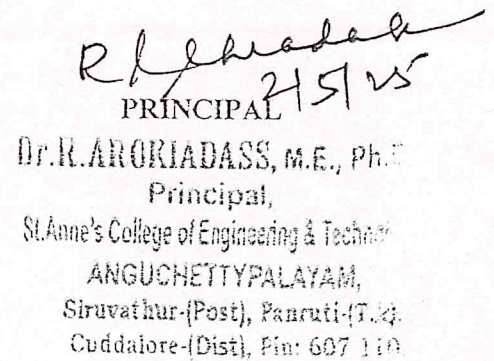 2/5/25
PRINCIPAL
Dr.R.AROKIADASS, M.E., Ph.
Principal,
St.Anne's College of Engineering &
ANGUCHETTYPALAYAM,
Siruvathur-(Post), Panruti-(T.k).
Cuddalore-(Dist), Pin: 607 110